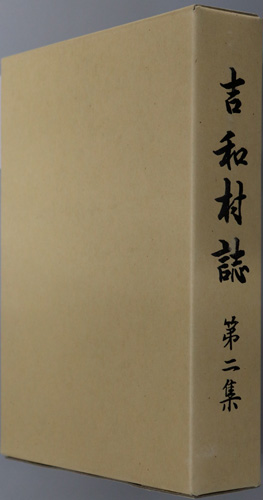 吉和村誌 第二集